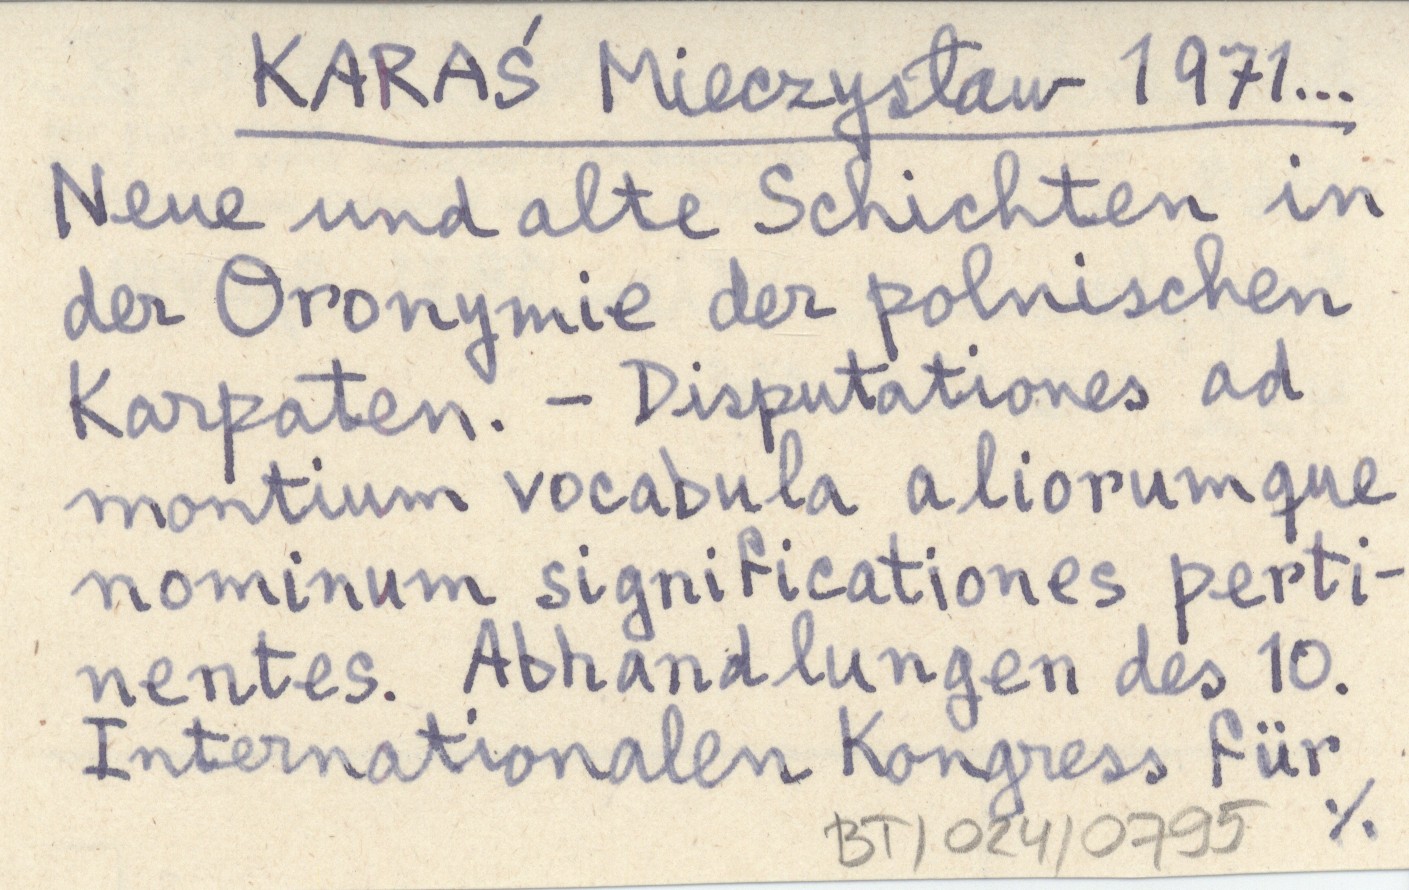 KARAŚ Mieczysław 1971...
Neue und alte Schichten in
der Oronymie der polnischen
Karpaten. – Disputationes ad
montium vocabula aliorumque
nominum significationes perti-
nentes. Abhandlungen des 10.
Internationalen Kongress für
BT/024/0795 ٪.